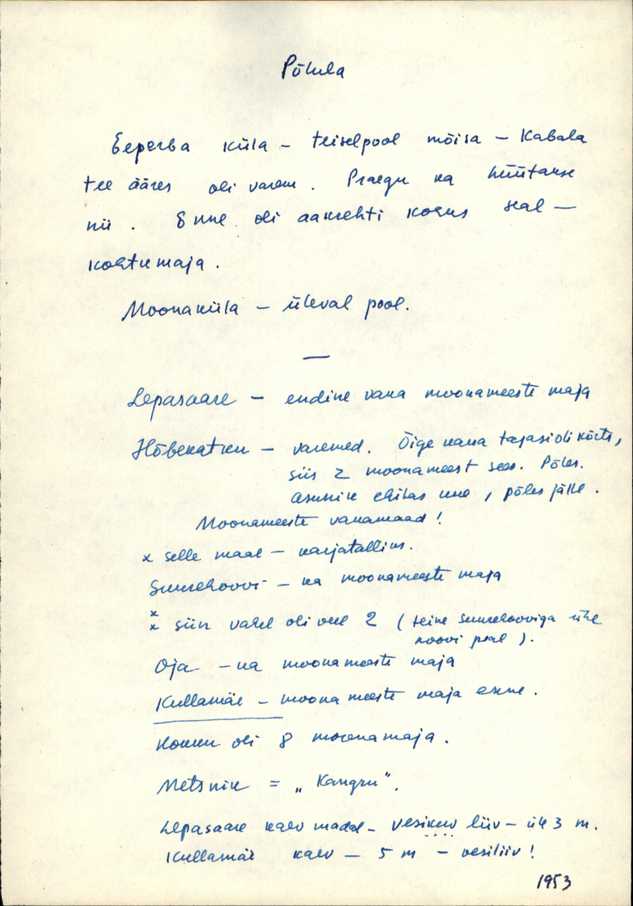 Põlula
Eeperba küla – teiselpool mõisa – Kabala
tee ääres oli varem. Praegu ka hüütakse
nii. Enne oli aamrehti kohus seal –
kohtumaja.
Moonaküla – üleval pool.
—
Lepasaare – endine vana moonameeste maja
Hõbekatku – varemed. Õige vana tagasi oli kõrts,
siis 2 moonameest sees. Põles.
Asunik ehitas uue, põles jälle.
Moonameeste vanamaad!
x selle maal – karjatallius.
Suurehoovi – ka moonameeste maja
x
x siin vahel oli veel 2 (teine Suurehooviga ühe
hoovi peal).
Oja – ka moonameeste maja
Kullamäe – moonameeste maja enne.
Kokku oli 8 moonamaja.
Metsnik = „Kangru".
Lepasaare kaev madal – vesikuv liiv – üle 3 m.
Kullamäe kaev – 5 m – vesiliiv!
1953